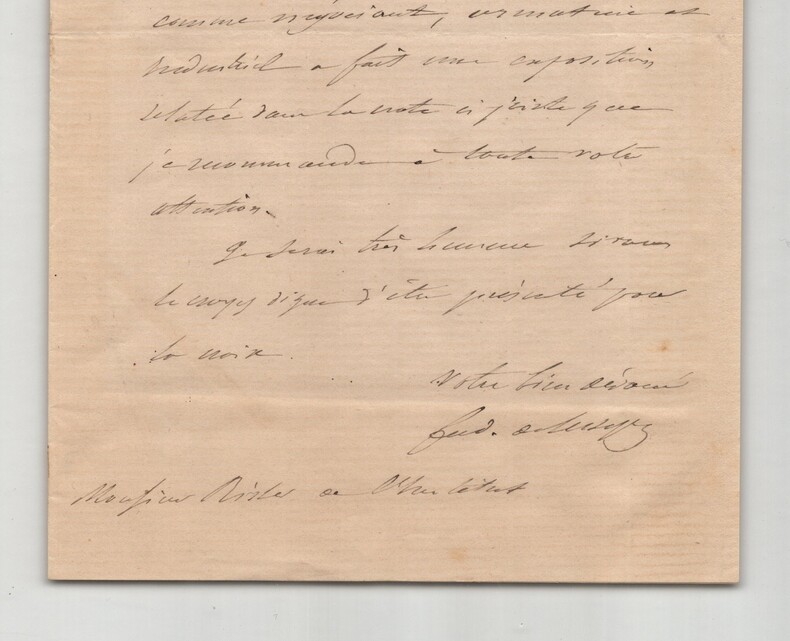 comme négociant, armateur et
industriel a fait une exposition
relatée dans la note ci jointe que
je recommande à toute votre
attention.
Je serai très heureux si vous
le croyez digne d'être présenté pour
la croix.
Votre bien dévoué
ferd. de Lesseps
Monsieur Risler de